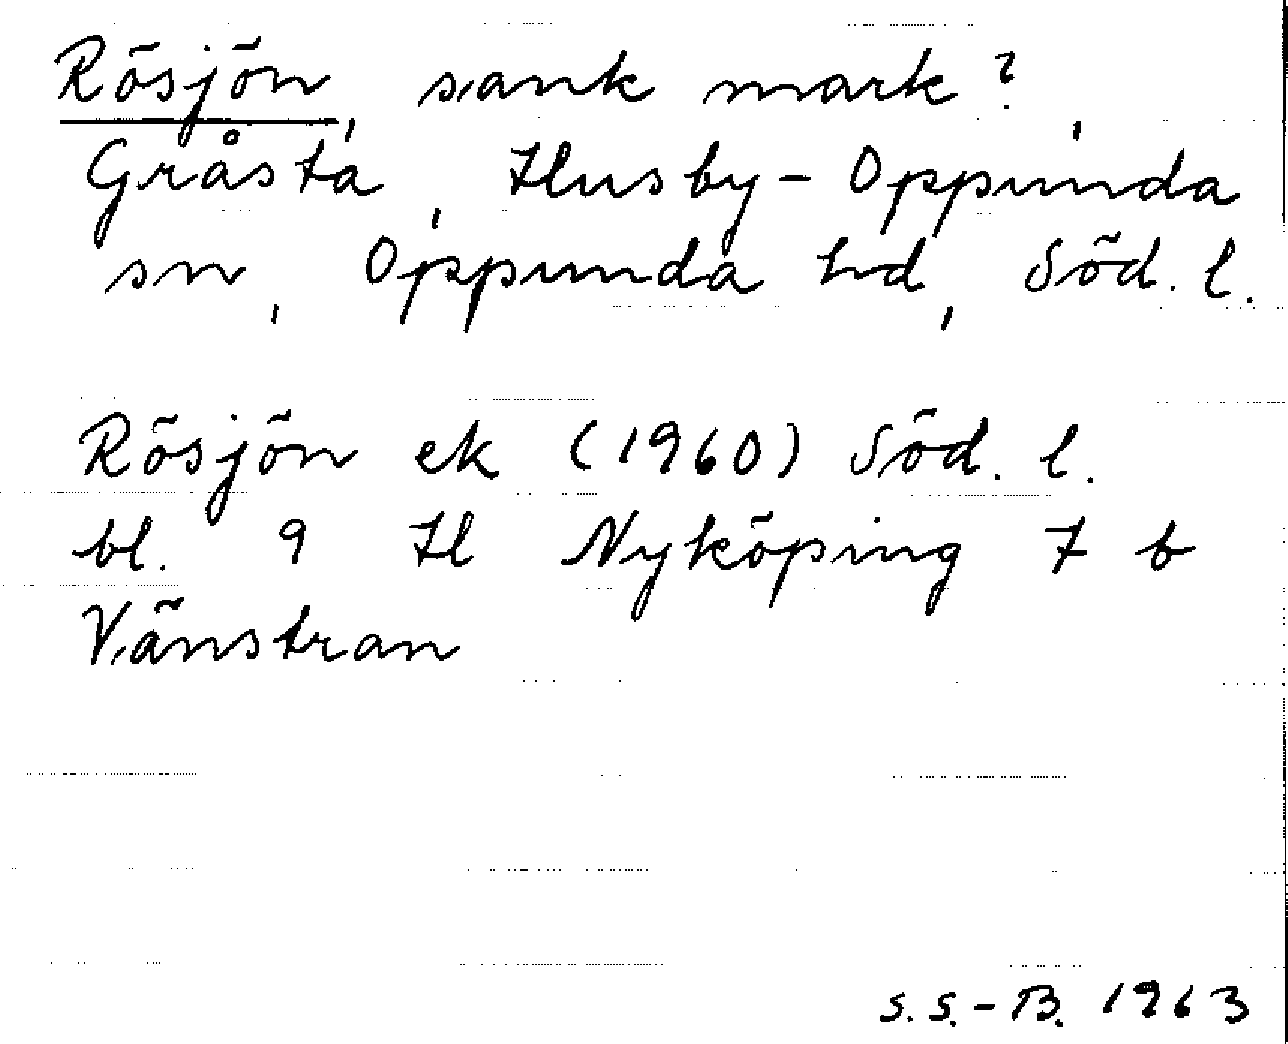 Rösjön, sank mark?,
Gråsta, Husby-Oppunda
sn, Oppunda hd, Söd. l.
Rösjön ek (1960) Söd. l.
bl. 9 H Nyköping 7 b
Vänstran
S.S.-B. 1963